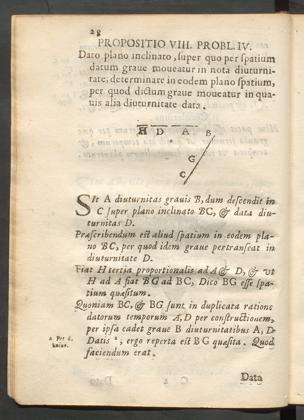 28
PROPOSITIO VIII. PROBL. IV.
Dato plano inclinato, super quo per spatium
datum graue moueatur in nota diuturni-
tate; determinare in eodem plano spatium,
per quod dictum graue moueatur in qua-
uis alia diuturnitate data.
H D A B
G
C
Sit A diuturnitas grauis B, dum descendit in
C super plano inclinato BC, & data diu-
turnitas D.
Præscribendum est aliud spatium in eodem pla-
no BC, per quod idem graue pertranseat in
diuturnitate D.
Fiat H tertia proportionalis ad A & D, & vt
H ad A fiat BG ad BC, Dico BG esse spa-
tium quæsitum.
Quoniam BC, & BG sunt in duplicata ratione
datorum temporum A, D per constructionem,
per ipsa cadet graue B diuturnitatibus A, D
Datis a; ergo reperta est BG quæsita. Quod
faciendum erat.
a Per 6.
huius.
Data